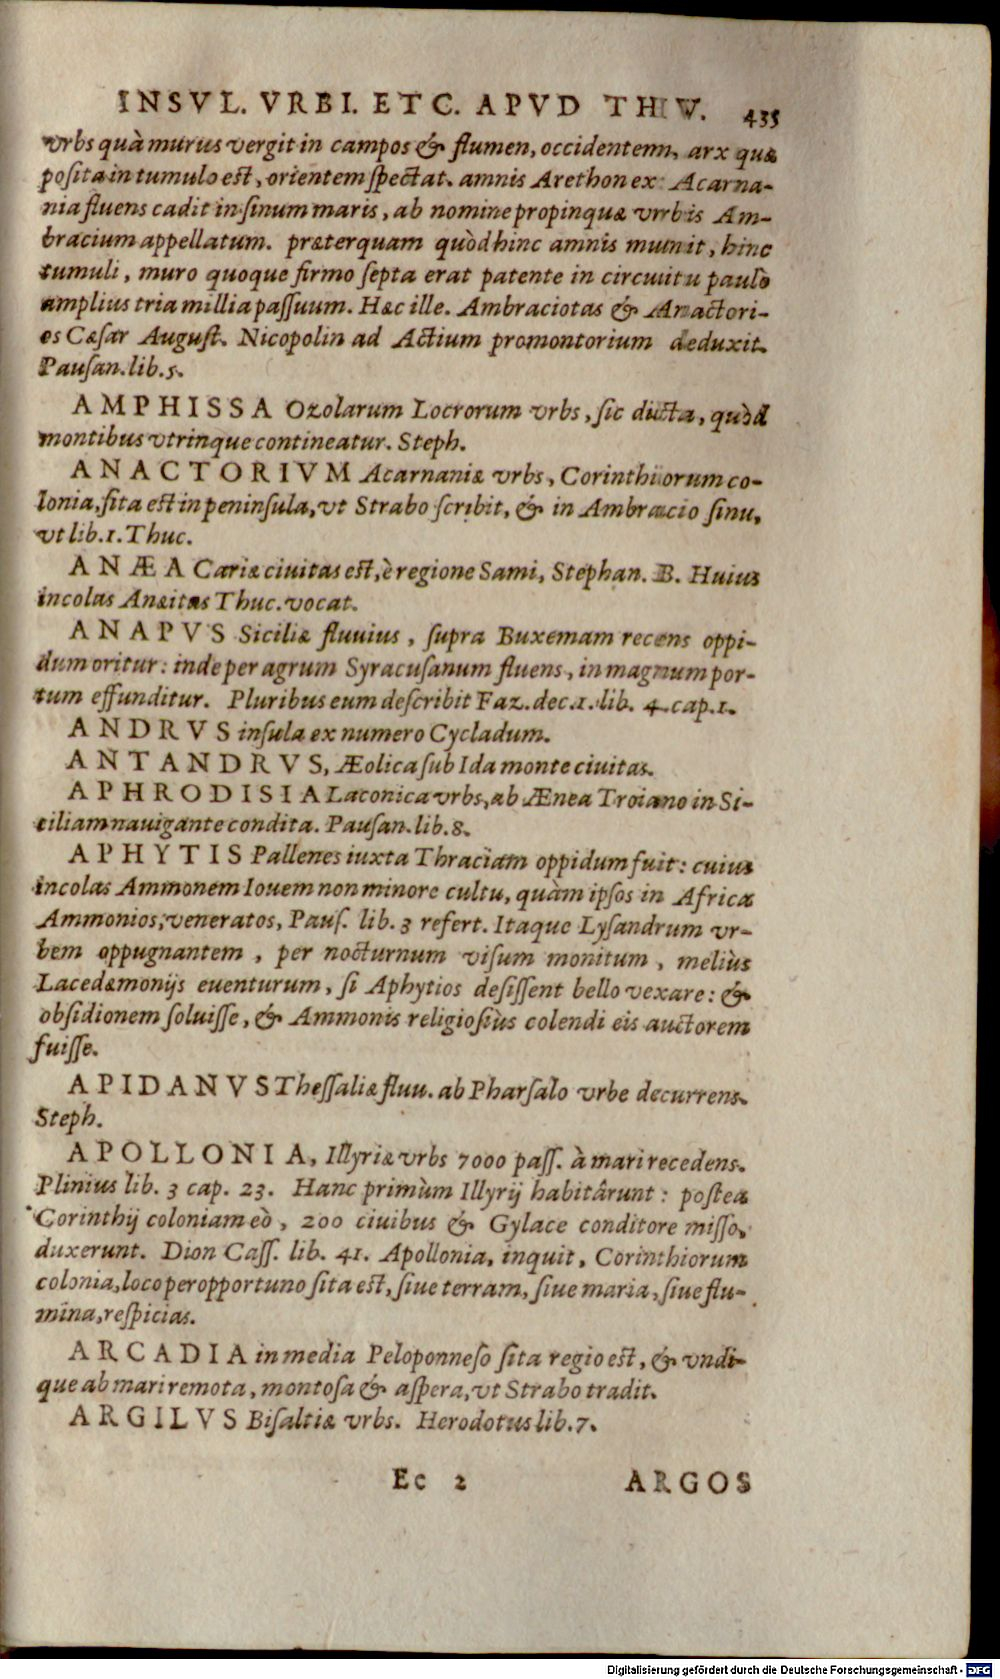 INSVL. VRBI. ETC. APVD THW. 435
vrbs quà murus vergit in campos & flumen, occidentem, arx quæ
posita in tumulo est, orientem spectat. amnis Arethon ex Acarna-
nia fluens cadit in sinum maris, ab nomine propinquæ vrbis Am-
bracium appellatum. præterquam quòd hinc amnis munit, hinc
tumuli, muro quoque firmo septa erat patente in circuitu paulo
amplius tria millia passuum. Hæc ille. Ambraciotas & Anactori-
os Cæsar August. Nicopolin ad Actium promontorium deduxit.
Pausan. lib. 5.
AMPHISSA Ozolarum Locrorum vrbs, sic dicta, quòd
montibus vtrinque contineatur. Steph.
ANACTORIVM Acarnaniæ vrbs, Corinthiorum co-
lonia, sita est in peninsula, vt Strabo scribit, & in Ambracio sinu,
vt lib. 1. Thuc.
ANÆA Cariæ ciuitas est, è regione Sami, Stephan. B. Huius
incolas Anæitas Thuc. vocat.
ANAPVS Siciliæ fluuius, supra Buxemam recens oppi-
dum oritur: inde per agrum Syracusanum fluens, in magnum por-
tum effunditur. Pluribus eum describit Faz. dec. 1. lib. 4. cap. 1.
ANDRVS insula ex numero Cycladum.
ANTANDRVS, Æolica sub Ida monte ciuitas.
APHRODISIA Laconica vrbs, ab Ænea Troiano in Si-
ciliam nauigante condita. Pausan. lib. 8.
APHYTIS Pallenes iuxta Thraciam oppidum fuit: cuius
incolas Ammonem Iouem non minore cultu, quàm ipsos in Africa
Ammonios, veneratos, Paus. lib. 3 refert. Itaque Lysandrum vr-
bem oppugnantem, per nocturnum visum monitum, meliùs
Lacedæmonijs euenturum, si Aphytios desissent bello vexare: &
obsidionem soluisse, & Ammonis religiosiùs colendi eis auctorem
fuisse.
APIDANVS Thessaliæ fluu. ab Pharsalo vrbe decurrens.
Steph.
APOLLONIA, Illyriæ vrbs 7000 pass. à mari recedens.
Plinius lib. 3 cap. 23. Hanc primùm Illyrij habitârunt: postea
Corinthij coloniam eò, 200 ciuibus & Gylace conditore misso,
duxerunt. Dion Cass. lib. 41. Apollonia, inquit, Corinthiorum
colonia, loco peropportuno sita est, siue terram, siue maria, siue flu-
mina, respicias.
ARCADIA in media Peloponneso sita regio est, & vndi-
que ab mari remota, montosa & aspera, vt Strabo tradit.
ARGILVS Bisaltiæ vrbs. Herodotus lib. 7.
Ee 2 ARGOS
Digitalisierung gefördert durch die Deutsche Forschungsgemeinschaft - DFG